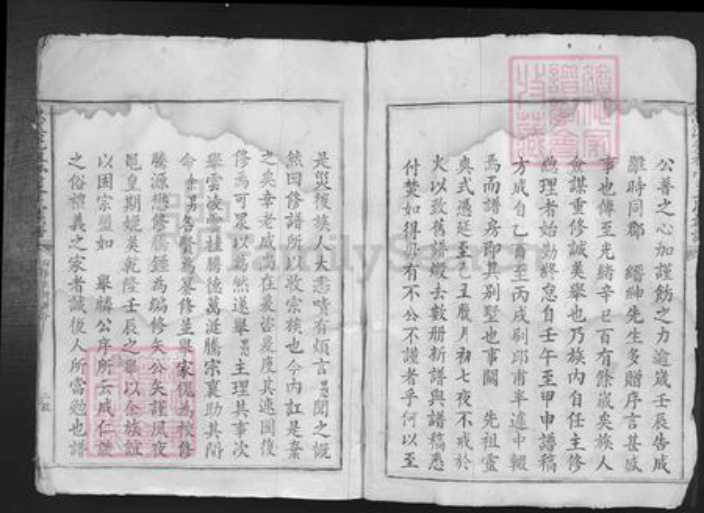 公善之心加謹飭之力逾歲壬辰告成
雖時同郡 縉紳先生多贈序言甚盛
事也傳至光緒辛巳百有餘歲矣族人
僉謀重修誠美舉也乃族內自任主修
總理者始勤終怠自壬午至甲申譜稿
方成自乙酉至丙戌刷印甫半途中輟
焉而譜房即其別墅也事關 先祖靈
爽式憑延至己丑臘月初七夜不戒於
火以致舊譜燬去數册新譜與譜稿悉
付焚如得毋有不公不謹者乎何以至
是災後族人大恚嘖有煩言 聞之慨
然曰修譜所以收宗族也今內訌是棄
之矣幸老成尚在爰咨爰度其速圖復
修焉可眾以為然遂舉 主理其事次
舉雲凌雲桂騰德萬涎騰宗襄助其間
命 各賢為纂修並舉家 為校修
騰源懋修騰鍾為編修矢公矢謹夙夜
罷皇期媲美乾隆壬辰之舉以全族誼
以固宗盟如 舉麟公序所云成仁讓
之俗禮義之家者誠後人所當勉也譜